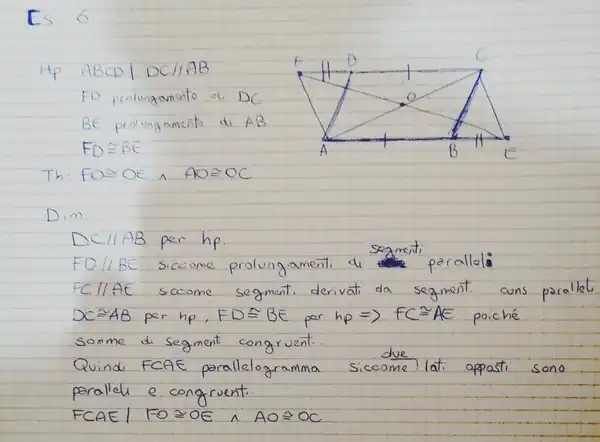 Es 6
Hp ABCD | DC//AB
FD prolungamento di DC
BE prolungamento di AB
FD≅BE
Th FO≅OE ∧ AO≅OC
F D C
O
A B E
Dim
DC//AB per hp.
FD//BE siccome prolungamenti di segmenti paralleli
FC//AE siccome segmenti derivati da segmenti paralleli
DC≅AB per hp, FD≅BE per hp => FC≅AE poiché
somme di segmenti congruenti.
Quindi FCAE parallelogramma siccome due lati opposti sono
paralleli e congruenti.
FCAE | FO≅OE ∧ AO≅OC